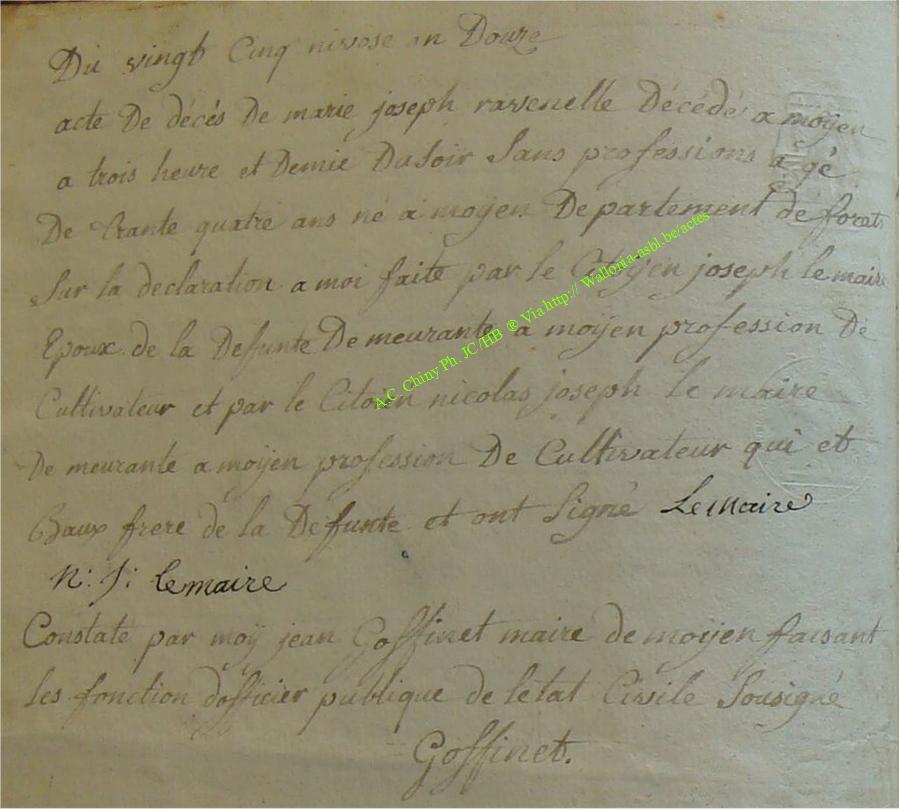 Du vingt Cinq nivose an Douze
acte De décés De marie joseph ravenelle Décédé a moyen
a trois heure et Demie Dusoir Sans professions a gé
De trante quatre ans né a moyen Departement de forets
Sur la declaration a moi faite par le Citoyen joseph le maire
Epoux de la Defunte Demeurante a moyen profession De
Cultivateur et par le Citoien nicolas joseph Le maire
De meurante a moyen profession De Cultivateur qui et
Baux frere de la Defunte et ont Signé Lemaire
N: J: lemaire
Constaté par moÿ jean Goffinet maire de moyen faisant
les fonction d'officier publique de letat Civile Sousigné
Goffinet.
A.C. Chiny Ph. JC/HB ® Via http:// Walloria-asbl.be/actes